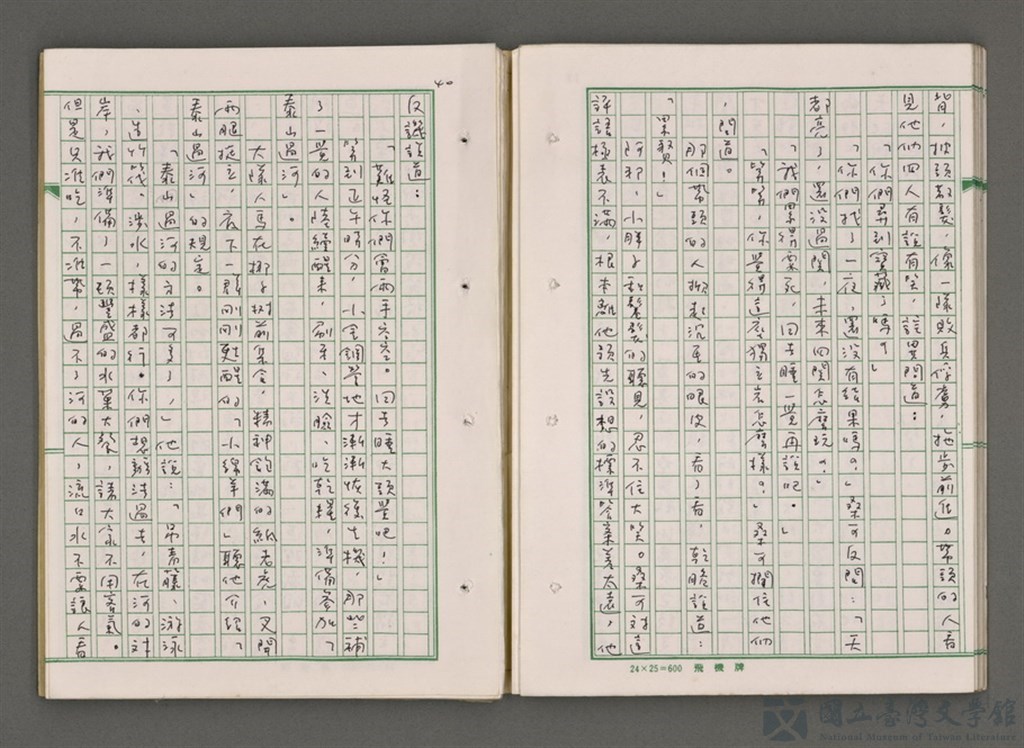 背，披頭散髮，像一隊敗兵俘虜，拖步前進。帶頭的人看
見他們四人有說有笑，詫異問道：
「你們弄到寶藏了嗎？」
「你們找了一夜，還沒有結果嗎？」桑可反問：「天
都亮了，還沒過關，未來四關怎麼玩？」
「我們累得要死，回去睡一覺再說吧。」
「等等，你覺得這座獨立岩怎麼樣？」桑可攔住他們
，問道。
那個帶頭的人撳起沉重的眼皮，看了看，乾脆說道：
「累贅！」
阿邦、小胖子和鬈髮的聽見，忍不住大笑。桑可對這
評語極表不滿，根本離他預先設想的標準答案差太遠，他
40
反譏說道：
「難怪你們會兩手空空。回去睡大頭覺吧！」
等到正午時分，小金鋼營地才漸漸恢復生機，那些補
了一覺的人陸續醒來，刷牙、洗臉、吃乾糧，準備參加「
泰山過河」。
大隊人馬在椰子樹前集合，精神飽滿的紙老虎，叉開
兩腿挺立，底下一群剛剛甦醒的「小綿羊們」聽他介紹「
泰山過河」的規定。
「泰山過河的方法可多了，」他說：「吊青籐、游泳
、造竹筏、涉水，樣樣都行。你們想辦法過去，在河的對
岸，我們準備了一頓豐盛的水果大餐，請大家不用客氣。
但是只准吃，不准帶，過不了河的人，流口水不要讓人看
24×25=600 飛機牌
國立臺灣文學館
National Museum of Taiwan Literature